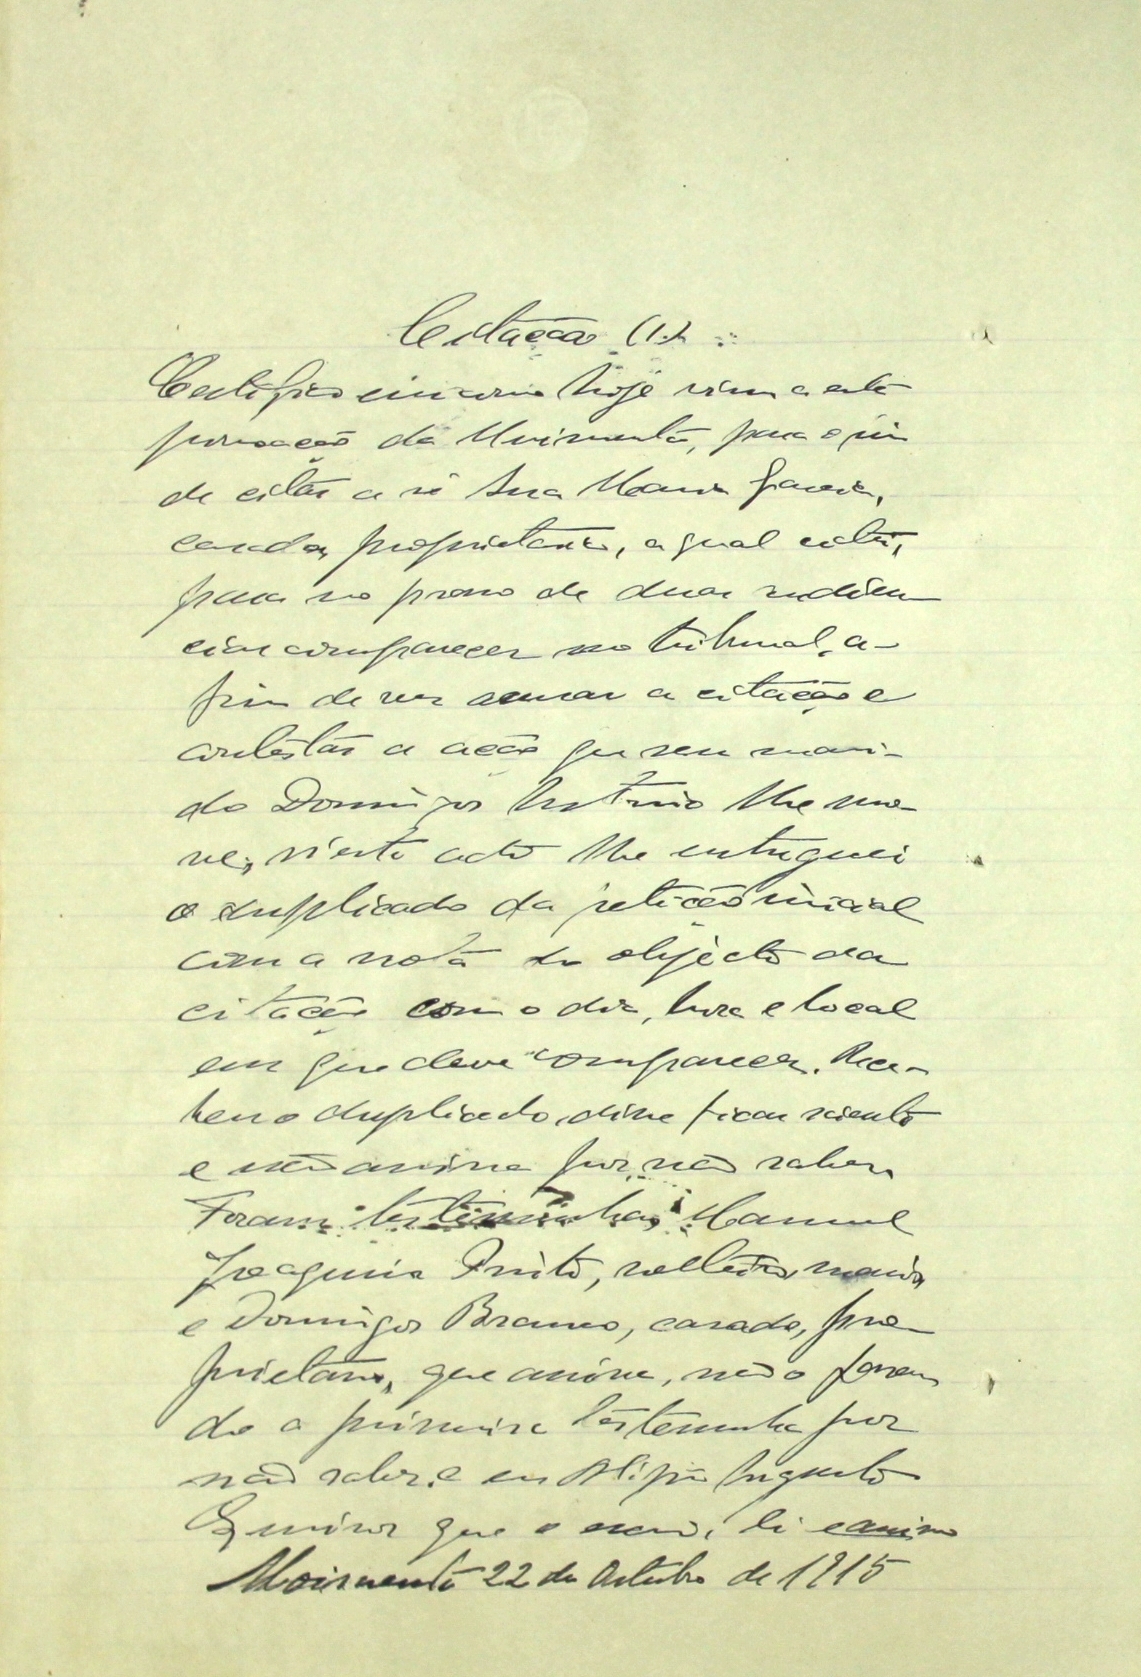 Citação (1.)
Certifico em como hoje vim a esta
povoação da Moimenta, para o fim
de citar a ré Ana Maria Garcia,
casada, proprietaria, a qual citei,
para no praso de duas audien
cias comparecer no tribunal, a-
fim de ver acusar a citação e
contestar a acção que seu mari-
do Domingos Antonio lhe mo-
ve; n'este acto lhe entreguei
o duplicado da petição inicial
com a nota do objecto da
citação com o dia, hora e local
em que deve comparecer. Rece-
beu o duplicado, disse ficar sciente
e não assina por não saber.
Foram testiminhas Manuel
Joaquim Pinto, solteiro, maior,
e Domingos Branco, casado, pro-
prietario, que assina, não o fazen
do a primeira testemunha por
não saber. E eu Alipio Augusto
que o escrevi, li e assino
Moimenta 22 de Outubro de 1915